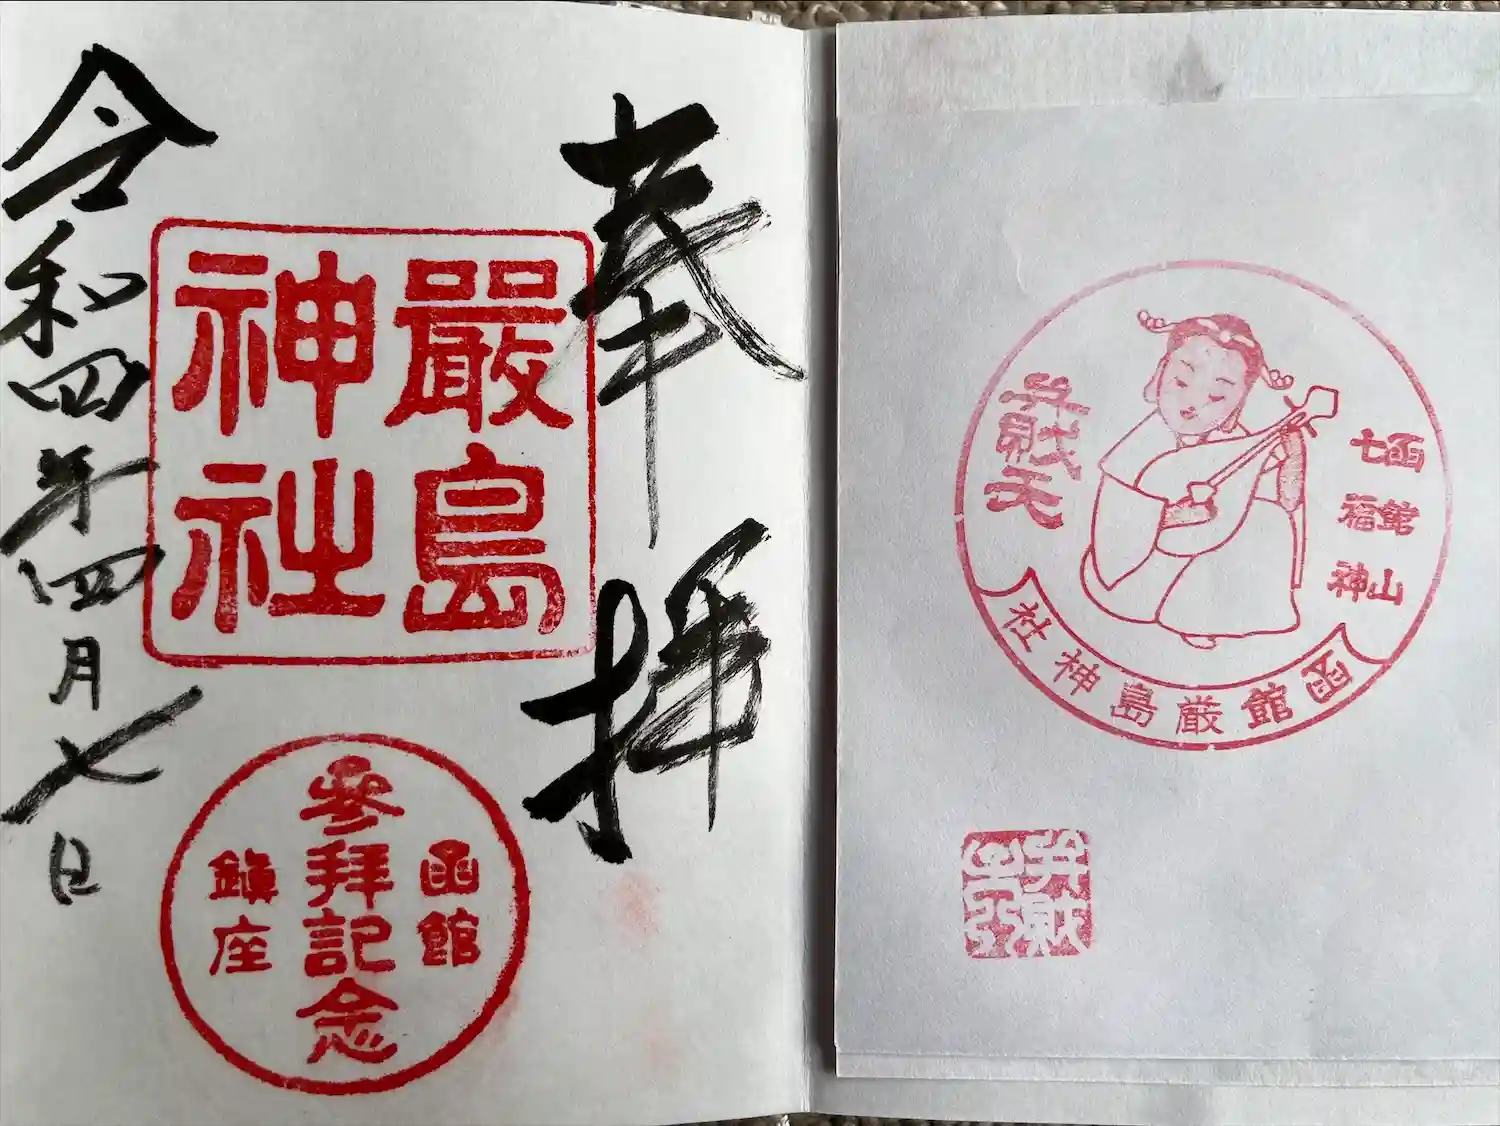 奉拝
嚴島
神社
令和四年四月七日
函館
参拜記念
鎮座
函館山
七福神
弁財天
函館厳島神社
弁財